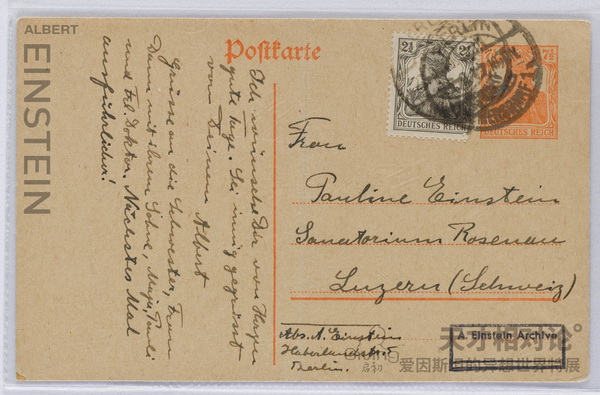 ALBERT
EINSTEIN
Postkarte
2½ 2½
7½
DEUTSCHES REICH
DEUTSCHES REICH
Ich wünsche Dir von Herzen
gute Tage. Sei innig gegrüsst
von Deinem Albert
Grüsse an die Schwester, Frau
Damm mit ihrem Sohne, Maja, Pauli
und Frl Doktor. Nächstes Mal
ausführlicher!
Frau
Pauline Einstein
Sanatorium Rosenau
Luzern (Schweiz)
Abs. A. Einstein
Haberlandstr. 5
Berlin.
A. Einstein Archive
天才相对论
启初
爱因斯坦的异想世界特展